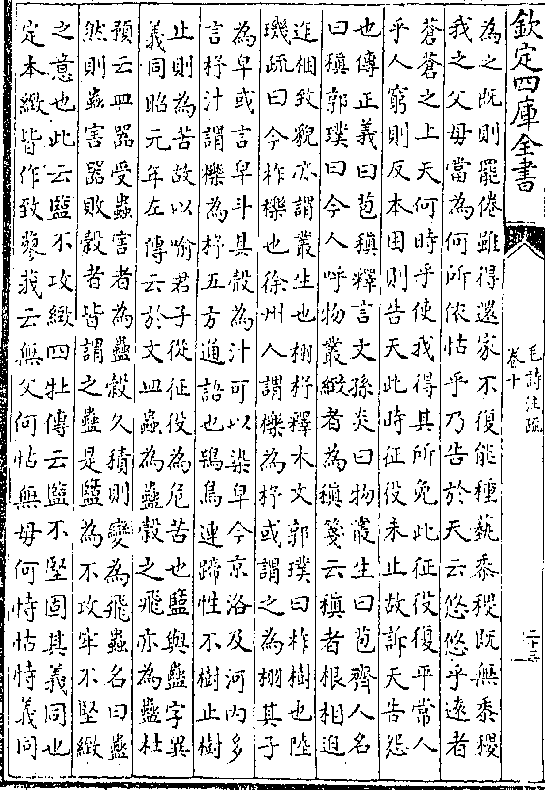 欽定四庫全書
毛詩注疏
卷十
二十三
為之既則罷倦雖得還家不復能種蓺黍稷既無黍稷
我之父母當為何所依怙乎乃告於天云悠悠乎遠者
蒼蒼之上天何時乎使我得其所免此征役復平常人
乎人窮則反本困則告天此時征役未止故訴天告怨
也傳正義曰苞稹釋言文孫炎曰物叢生曰苞齊人名
曰稹郭璞曰今人呼物叢緻者為稹箋云稹者根相迫
迮梱致貌亦謂叢生也栩杼釋木文郭璞曰柞樹也陸
璣疏曰今柞櫟也徐州人謂櫟為杼或謂之為栩其子
為皁或言皁斗其殼為汁可以染皁今京洛及河內多
言杼汁謂櫟為杼五方通語也鴇鳥連蹄性不樹止樹
止則為苦故以喻君子從征役為危苦也盬與蠱字異
義同昭元年左傳云於文皿蟲為蠱穀之飛亦為蠱杜
預云皿器受蟲害者為蠱穀久積則變為飛蟲名曰蠱
然則蟲害器敗穀者皆謂之蠱是盬為不攻牢不堅緻
之意也此云盬不攻緻四牡傳云盬不堅固其義同也
定本緻皆作致蓼莪云無父何怙無母何恃怙恃義同